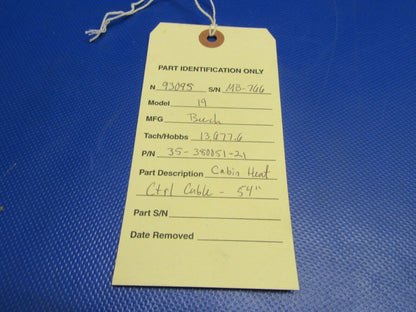 PART IDENTIFICATION ONLY
N 93095 S/N MB-766
Model 19
MFG Beech
Tach/Hobbs 13,677.6
P/N 35-380051-21
Part Description Cabin Heat
Ctrl Cable - 54"
Part S/N
Date Removed